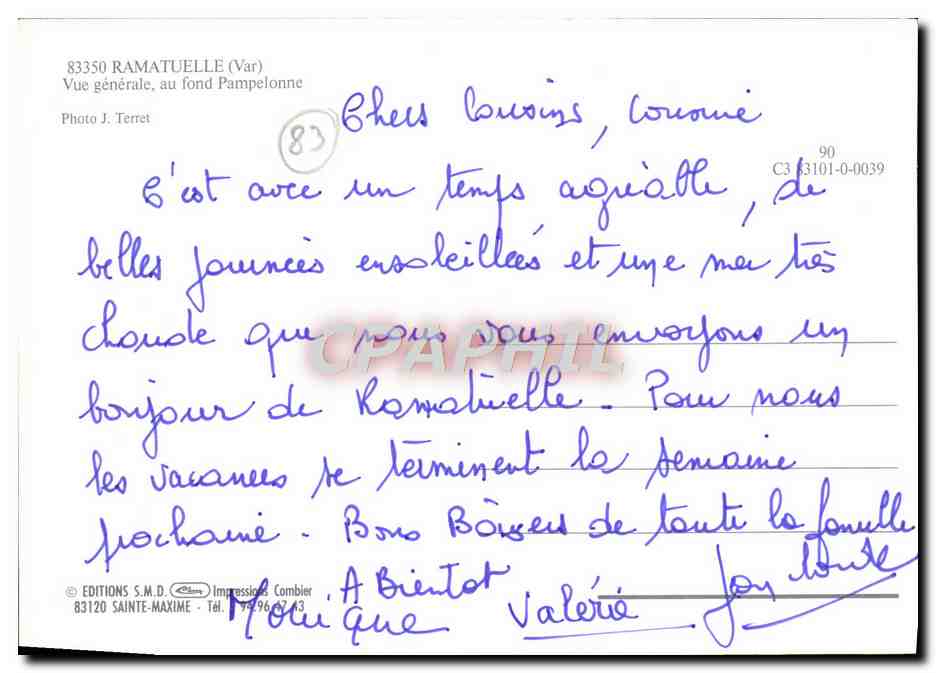 83350 RAMATUELLE (Var)
Vue générale, au fond Pampelonne
Photo J. Terret
83
90
C3 83101-0-0039
Chers Cousins, Cousine
C'est avec un temps agréable, de
belles journées ensoleillées et une mer très
chaude que nous vous envoyons un
bonjour de Ramatuelle. Pour nous
les vacances se terminent la semaine
prochaine. Bons Baisers de toute la famille
A Bientot
Monique Valérie
© EDITIONS S.M.D. Impressions Combier
83120 SAINTE-MAXIME - Tél. 94.96 43
CPAPHIL